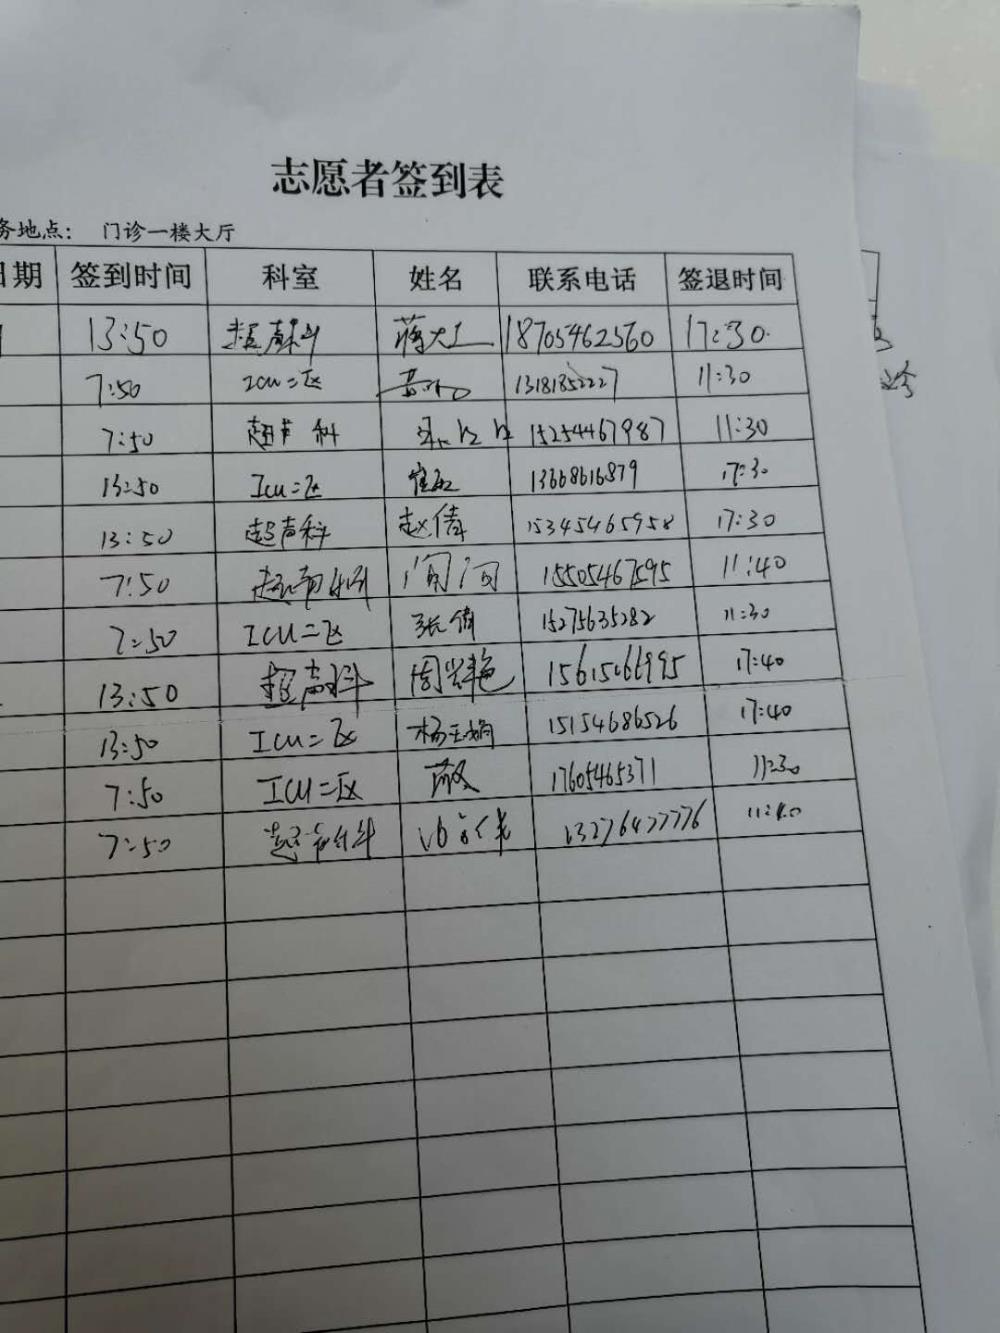 志愿者签到表
务地点： 门诊一楼大厅
日期 签到时间 科室 姓名 联系电话 签退时间
13:50 超声科 18705462560 17:30
7:50 ICU二区 13181852227 11:30
7:50 超声科 15254467987 11:30
13:50 ICU二区 13668616879 17:30
13:50 超声科 赵倩 15345465958 17:30
7:50 超声科 闫闫 15505467595 11:40
7:50 ICU二区 张倩 15275635282 11:30
13:50 超声科 周翠艳 15615066995 17:40
13:50 ICU二区 杨玉娟 15154686526 17:40
7:50 ICU二区 17605465371 11:30
7:50 超声科 13276477776 11:40